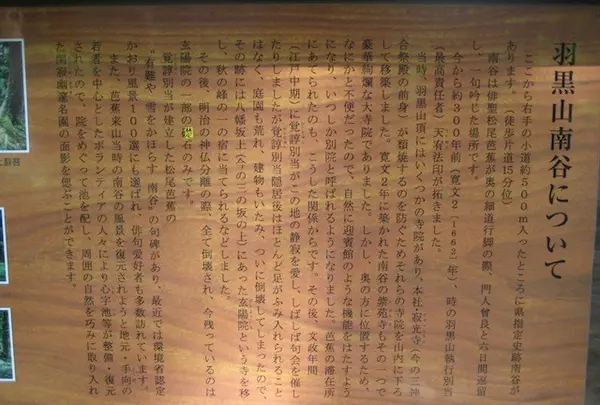 羽黒山南谷について
ここから右手の小道約500m入ったところに県指定史跡南谷が
あります。(徒歩片道15分位)
南谷は俳聖松尾芭蕉が奥の細道行脚の際、門人曽良と六日間逗留
し、一句吟じた場所です。
今から約300年前(寛文2〔1662〕年、時の羽黒山執行別当
(最高責任者)天宥法印が拓きました。
当時、羽黒山頂にはいくつかの寺院があり、本社(寂光寺・今の三神
合祭殿の前身)が類焼するのを防ぐためそれらの寺院を山内に下ろ
して移築しました。寛文2年に築かれた南谷の紫苑寺もその一つで
豪華絢爛な大寺院でありました。しかし、奥の方に位置するため、
なにかと不便だったので、自然に迎賓館のような機能をはたすよう
になり、いつしか別院と呼ばれるようになりました。芭蕉の滞在所
にあてられたのも、こうした関係からです。その後、文政年間
(江戸中期)に覚諄別当がこの地の静寂を愛し、しばしば句会を催し
たりしましたが覚諄別当隠居後はほとんど足がふみ入れられること
はなく、庭園も荒れ、建物もいたみ、ついに倒壊してしまったので、
その跡には八幡坂上(今の三の坂の上)にあった玄陽院という寺を移
し、秋の峰の一の宿に当てられるなどしました。
その後、明治の神仏分離の際、全て倒壊され、今残っているのは
玄陽院の一部の礎石のみです。
覚諄別当が建立した松尾芭蕉の
“有難や 雪をかほらす 南谷”の句碑があり、最近では環境省認定
かおり風景100選にも選ばれ、俳句愛好者も多数訪れています。
また、芭蕉来山当時の南谷の風景を復元されようと地元・手向の
若者を中心としたボランティアの人々により心字池等が整備・復元
されたので、院をめぐって池を配し、周囲の自然を巧みに取り入れ
た閑寂幽邃名園の面影を偲ぶことができます。